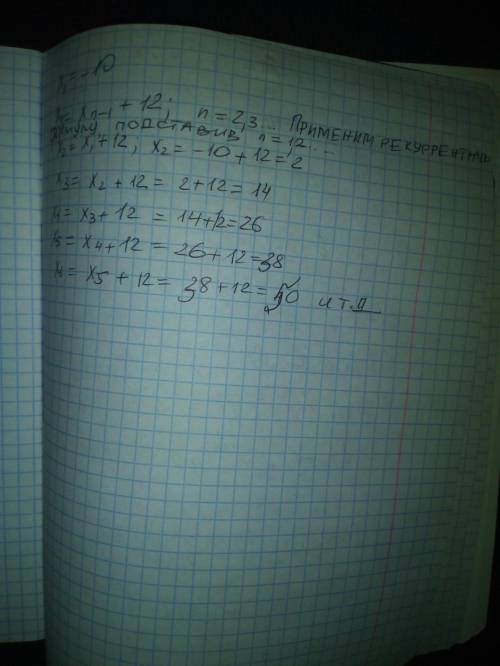 x₁ = -10
xₙ = xₙ₋₁ + 12; n = 2,3... ПРИМЕНИМ РЕКУРРЕНТНУЮ
ФОРМУЛУ ПОДСТАВИВ n = 1,2...
x₂ = x₁ + 12; x₂ = -10 + 12 = 2
x₃ = x₂ + 12 = 2 + 12 = 14
x₄ = x₃ + 12 = 14 + 12 = 26
x₅ = x₄ + 12 = 26 + 12 = 38
x₆ = x₅ + 12 = 38 + 12 = 50 и т.д